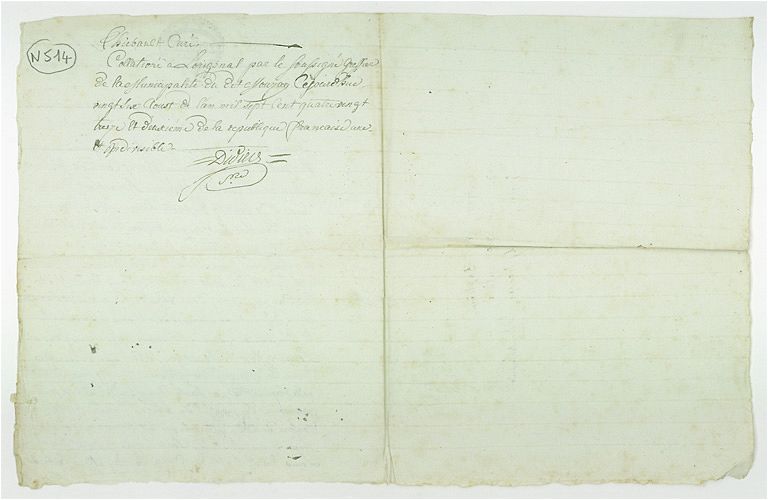 N514
Thiebault Curé
Collationé a Loriginal par le soussigné Greffier
de la Municipalité du dit Cejourd'hui
vingt six aoust de l'an mil sept Cent quatre vingt
treize et deuxieme de la republique francaise une
et indivisible
Didier